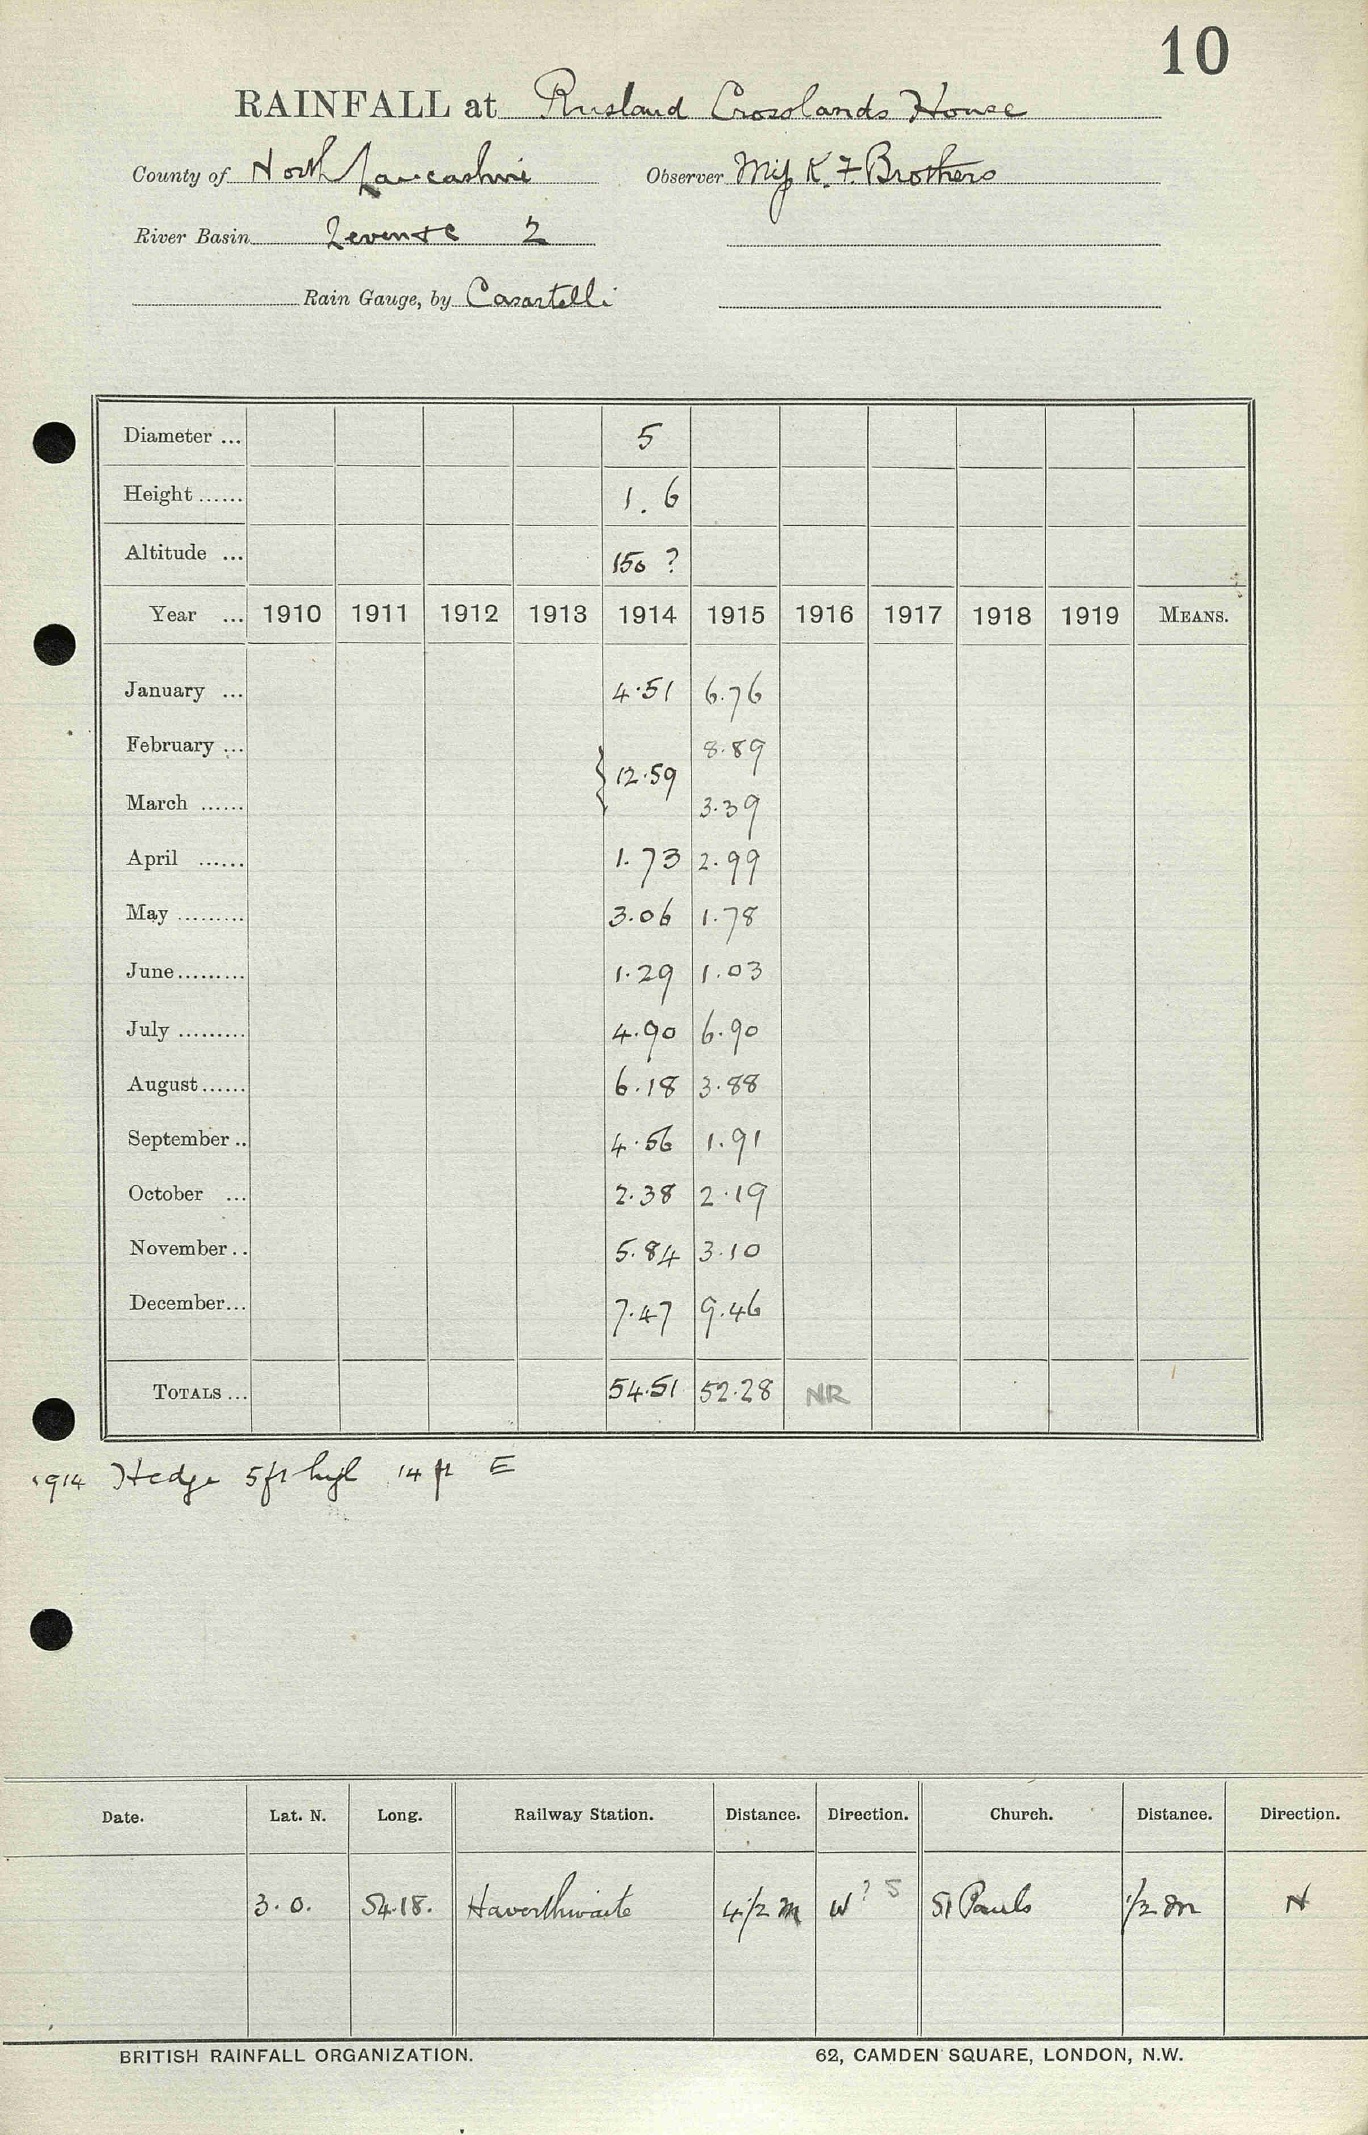 10
RAINFALL at Rusland Crosslands House
County of North Lancashire Observer Miss K. F. Brothers
River Basin 2
Rain Gauge, by Casartelli
Diameter ... 5
Height ...... 1.6
Altitude ... 150 ?
Year ... 1910 1911 1912 1913 1914 1915 1916 1917 1918 1919 MEANS.
January ... 4.51 6.76
February ... 8.89
} 12.59
March ...... 3.39
April ...... 1.73 2.99
May ......... 3.06 1.78
June ......... 1.29 1.03
July ......... 4.90 6.90
August ...... 6.18 3.88
September .. 4.56 1.91
October ... 2.38 2.19
November .. 5.84 3.10
December ... 7.47 9.46
TOTALS ... 54.51 52.28 NR
1914 Hedge 5 ft high 14 ft E
Date. Lat. N. Long. Railway Station. Distance. Direction. Church. Distance. Direction.
3.0. 54.18. Haverthwaite 4 1/2 m W ? S St Pauls 1/2 m N
BRITISH RAINFALL ORGANIZATION. 62, CAMDEN SQUARE, LONDON, N.W.